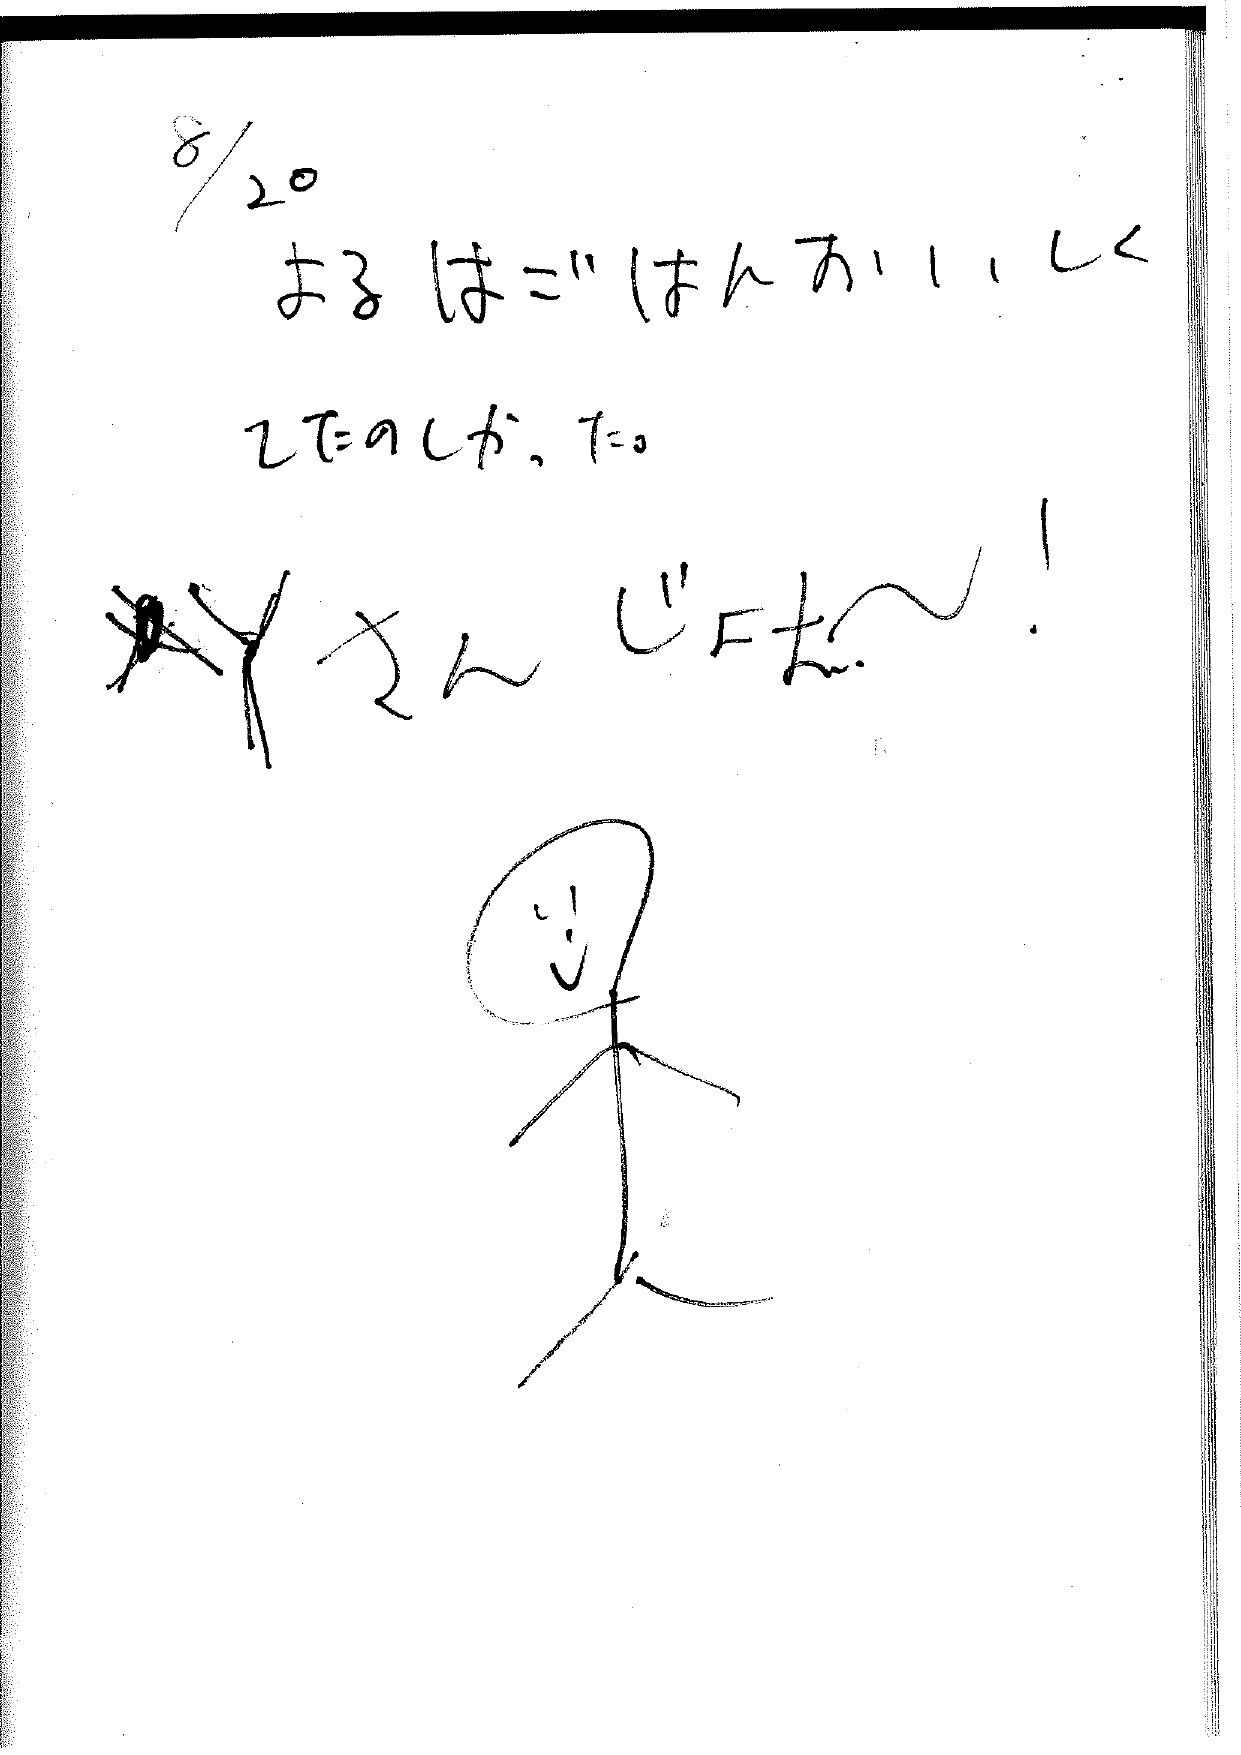 8/20
よるはごはんおいしく
てたのしかった。
Yさん